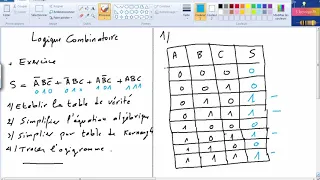 Logique Combinatoire
1)
+ Exercice
S = A̅BC̅ + A̅BC + AB̅C + ABC
010 011 101 111
1) Etablir la table de vérité
2) Simplifier l'équation algébrique
3) Simplier par table de Karnaugh
4) Tracer logigramme
A B C S
0 0 0 0
0 0 1 0
0 1 0 1
0 1 1 1
1 0 0 0
1 0 1 1
1 1 0 0
1 1 1 1